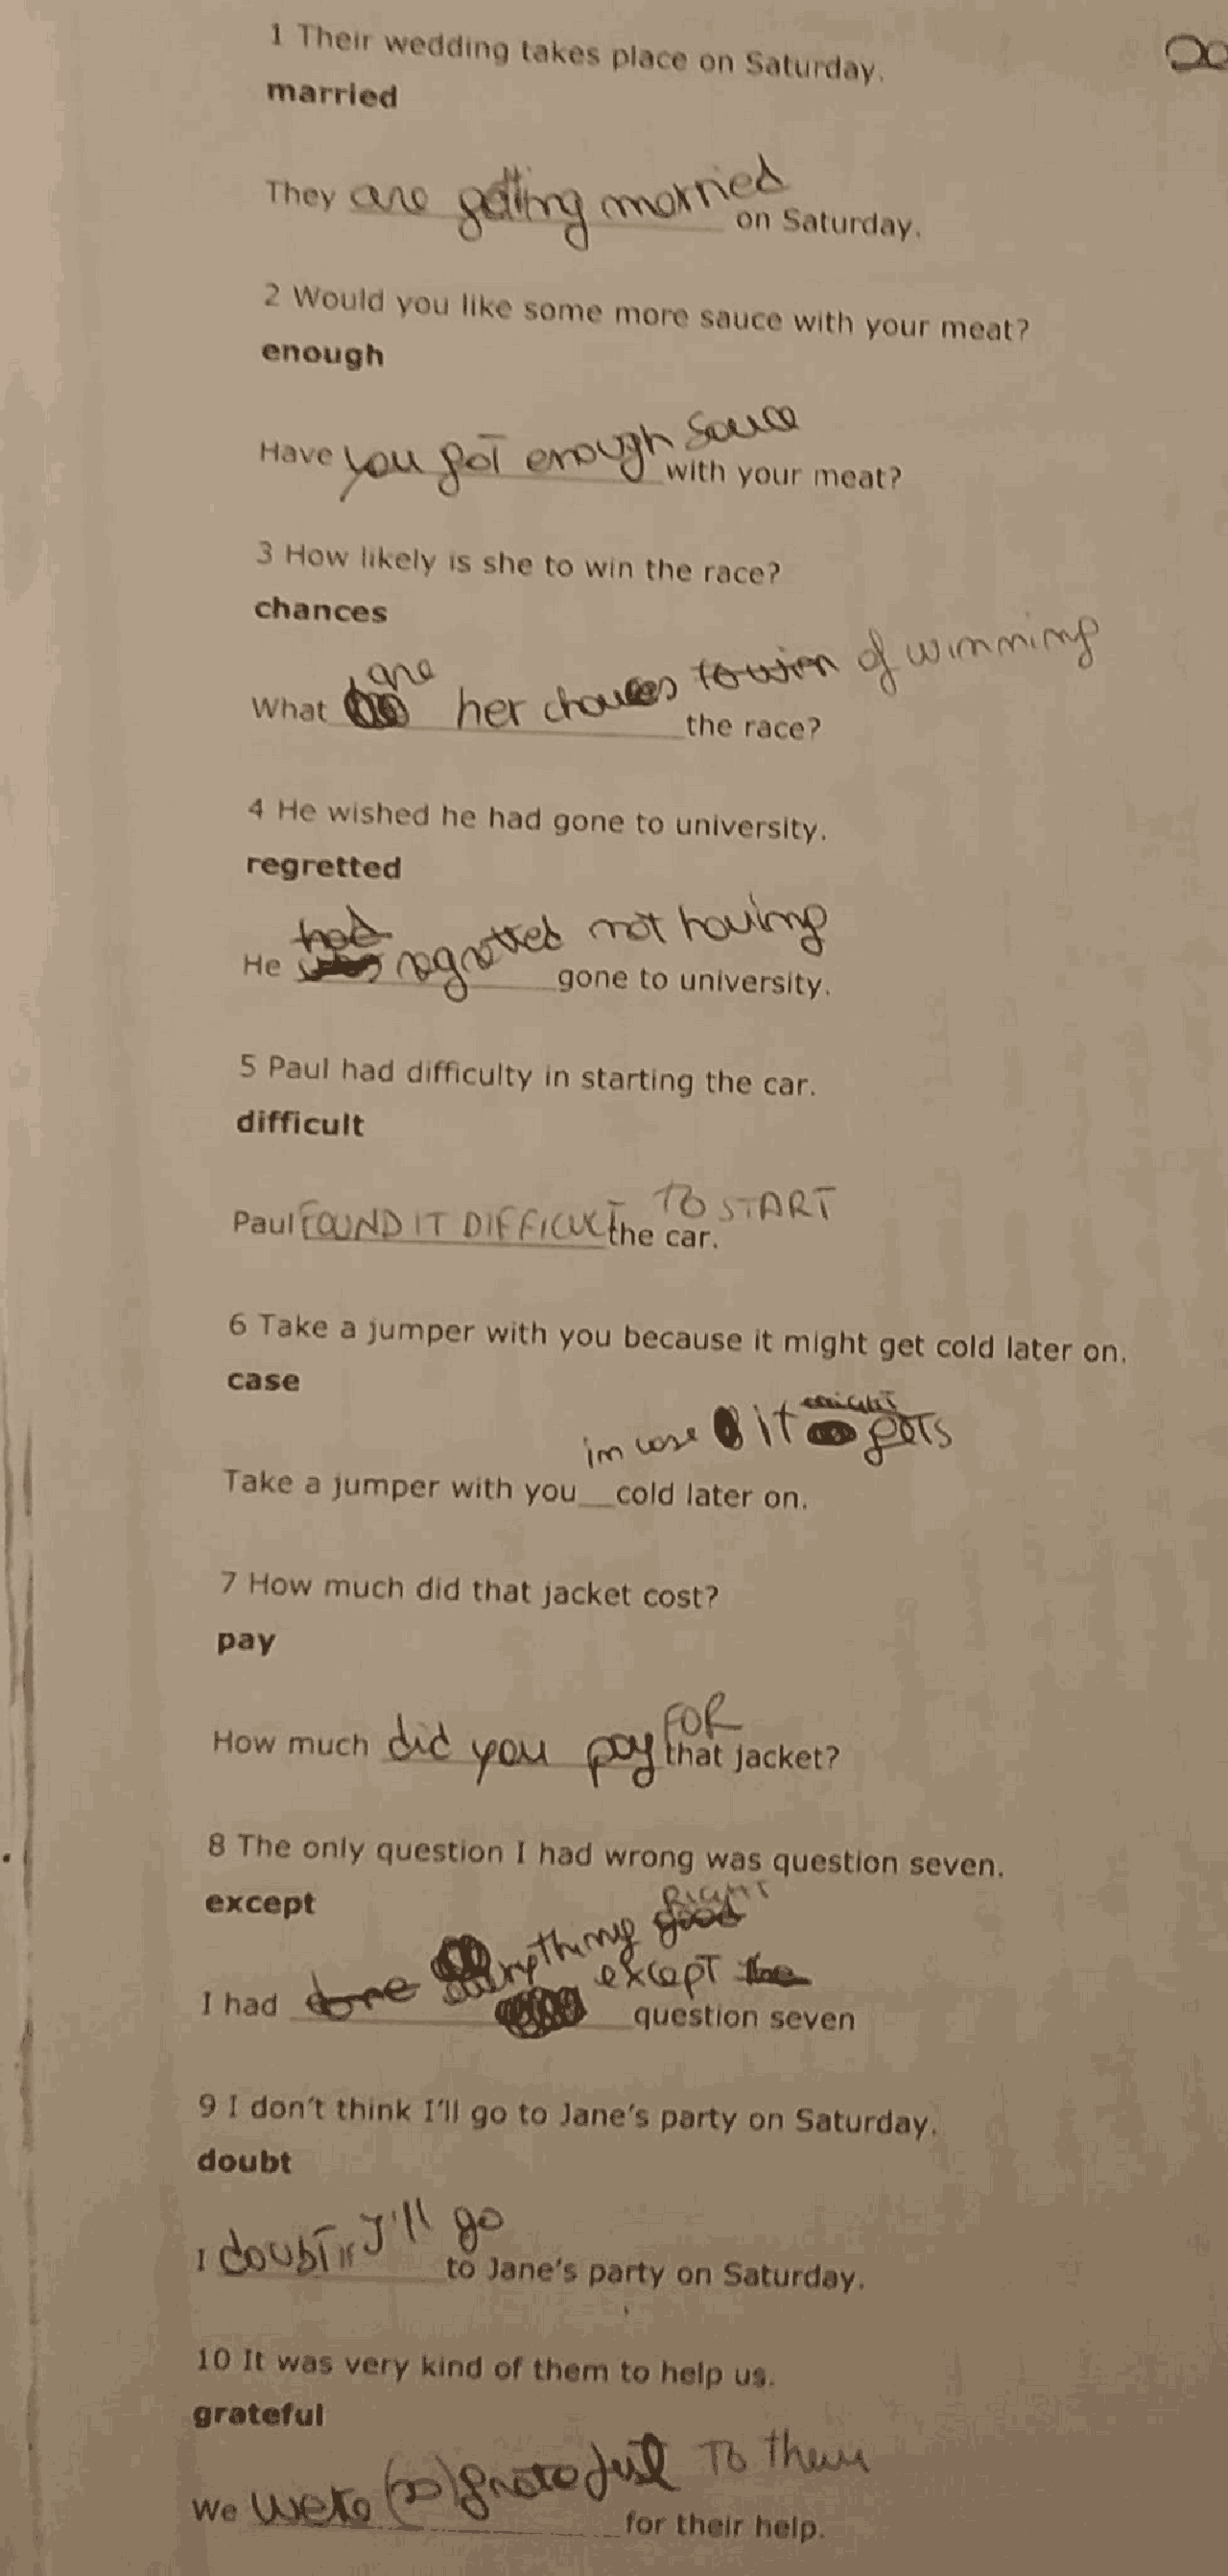 1 Their wedding takes place on Saturday.
married
They are getting married on Saturday.
2 Would you like some more sauce with your meat?
enough
Have you got enough sauce with your meat?
3 How likely is she to win the race?
chances
are
What her chances to win of winning the race?
4 He wished he had gone to university.
regretted
had
He regretted not having gone to university.
5 Paul had difficulty in starting the car.
difficult
Paul FOUND IT DIFFICULT TO START the car.
6 Take a jumper with you because it might get cold later on.
case
in case it might gets
Take a jumper with you__cold later on.
7 How much did that jacket cost?
pay
How much did you pay FOR that jacket?
8 The only question I had wrong was question seven.
except
RIGHT
I had done everything good except the question seven
9 I don't think I'll go to Jane's party on Saturday.
doubt
I doubt if I'll go to Jane's party on Saturday.
10 It was very kind of them to help us.
grateful
We were (so) grateful TO them for their help.